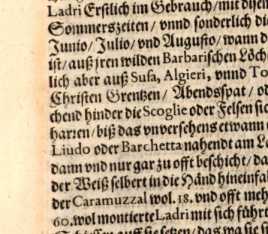 Ladri Erstlich im Gebrauch/mit disen
Sommerszeiten/ vnnd sonderlich di
Junio/ Julio/ vnd Augusto/ wann d
ist/ auß jren wilden Barbarischen Löch
lich aber auß Susa, Algieri, vnnd To
Christen Grentzen/ Abendsspat/ od
chend hinder die Scoglie oder Felsen sic
harren/ biß das vnversehens etwann
Liudo oder Barchetta nahendt am L
dann vnd nur gar zu offt beschicht/ da
der Weiß selbert in die Händ hineinfah
der Caramuzzal wol. 18. vnd offt meh
60. wol montierte Ladri mit sich führt